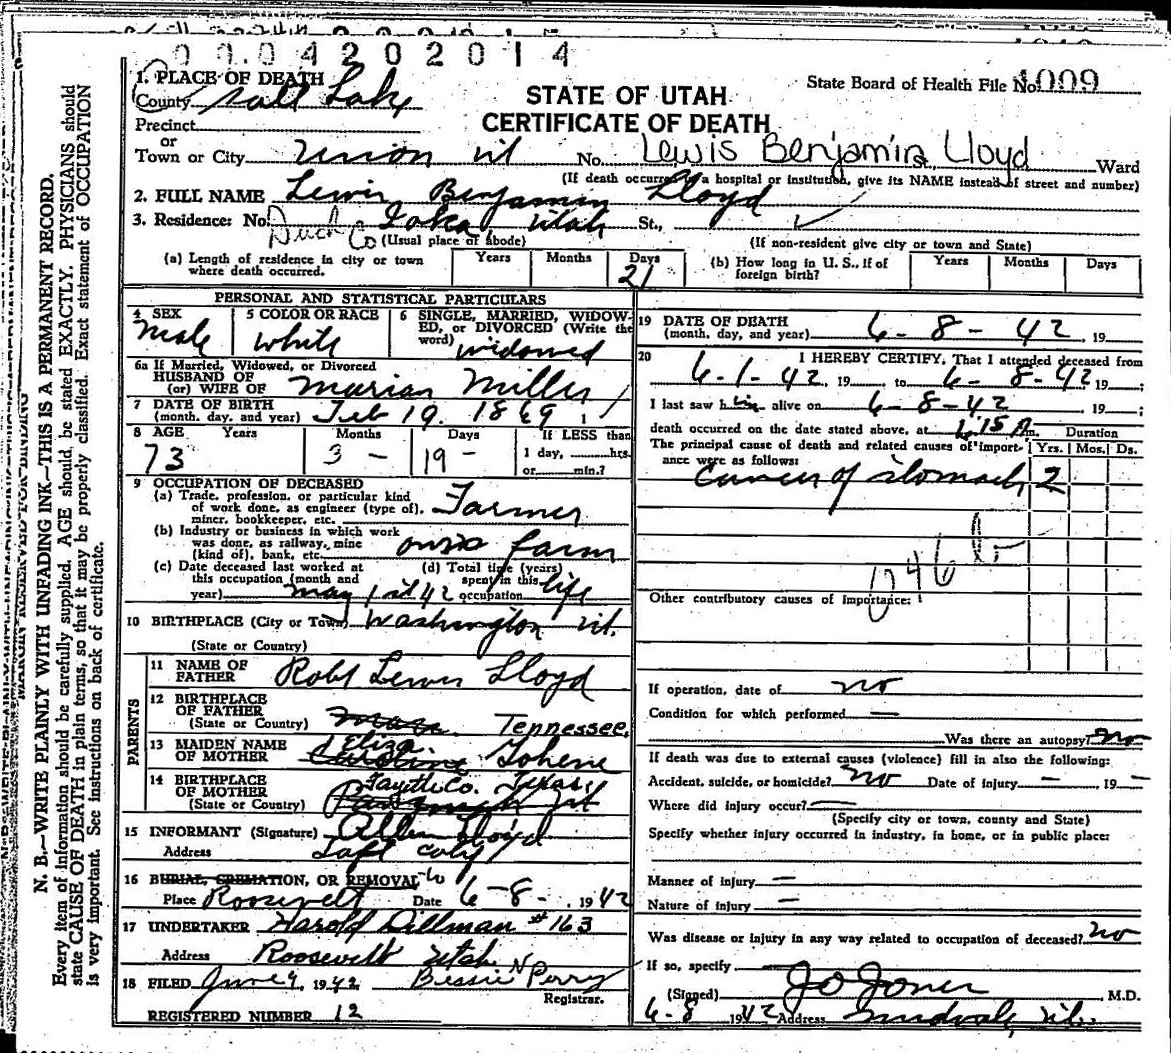 0 0.0 4 2 0 2 0 1 4
1. PLACE OF DEATH
County Salt Lake
Precinct
or
Town or City Union ut No. Lewis Benjamin Lloyd Ward
STATE OF UTAH
CERTIFICATE OF DEATH
State Board of Health File No. 1009
(If death occurred in a hospital or institution, give its NAME instead of street and number)
2. FULL NAME Lewis Benjamin Lloyd
3. Residence: No. Ioka, Utah St.,
Duch Co (Usual place of abode)
(If non-resident give city or town and State)
(a) Length of residence in city or town where death occurred. Years Months Days 21
(b) How long in U. S., if of foreign birth? Years Months Days
PERSONAL AND STATISTICAL PARTICULARS
4 SEX male
5 COLOR OR RACE white
6 SINGLE, MARRIED, WIDOWED, or DIVORCED (Write the word) widowed
6a If Married, Widowed, or Divorced
HUSBAND OF
(or) WIFE OF Marian Miller
7 DATE OF BIRTH
(month, day, and year) Feb 19. 1869 1
8 AGE Years Months Days If LESS than
73 3 - 19 - 1 day, hrs.
or min.?
9 OCCUPATION OF DECEASED
(a) Trade, profession, or particular kind
of work done, as engineer (type of),
miner, bookkeeper, etc. Farmer
(b) Industry or business in which work
was done, as railway, mine
(kind of), bank, etc. own farm
(c) Date deceased last worked at
this occupation (month and
year) may 1st 42
(d) Total time (years)
spent in this
occupation life
10 BIRTHPLACE (City or Town) Washington ut.
(State or Country)
PARENTS
11 NAME OF
FATHER Robt Lewis Lloyd
12 BIRTHPLACE
OF FATHER
(State or Country) Tennessee.
13 MAIDEN NAME
OF MOTHER Eliza Caroline Gohene
14 BIRTHPLACE
OF MOTHER Fayette Co. Texas
(State or Country)
15 INFORMANT (Signature) Allen Lloyd
Address
16 BURIAL, CREMATION, OR REMOVAL to
Place Roosevelt Date 6-8-.1942
17 UNDERTAKER Harold Dillman #163
Address Roosevelt Utah
18 FILED June 9, 1942. Bessie N Perry
Registrar.
REGISTERED NUMBER 12
19 DATE OF DEATH
(month, day, and year) 6-8-42, 19
20 I HEREBY CERTIFY, That I attended deceased from
6-1-42, 19 to 6-8-42 19 ;
I last saw him alive on 6-8-42 19 ;
death occurred on the date stated above, at 6.15 A m. Duration
The principal cause of death and related causes of importance were as follows: Yrs. Mos. Ds.
Cancer of stomach 2
046 b
Other contributory causes of importance:
If operation, date of no
Condition for which performed —
Was there an autopsy? no
If death was due to external causes (violence) fill in also the following:
Accident, suicide, or homicide? no Date of injury — 19 —
Where did injury occur? —
(Specify city or town, county and State)
Specify whether injury occurred in industry, in home, or in public place:
Manner of injury —
Nature of injury —
Was disease or injury in any way related to occupation of deceased? no
If so, specify
(Signed) J O Jones M.D.
6-8 1942 Address Midvale, Ut.
N. B.—WRITE PLAINLY WITH UNFADING INK—THIS IS A PERMANENT RECORD.
Every item of information should be carefully supplied. AGE should be stated EXACTLY. PHYSICIANS should
state CAUSE OF DEATH in plain terms, so that it may be properly classified. Exact statement of OCCUPATION
is very important. See instructions on back of certificate.